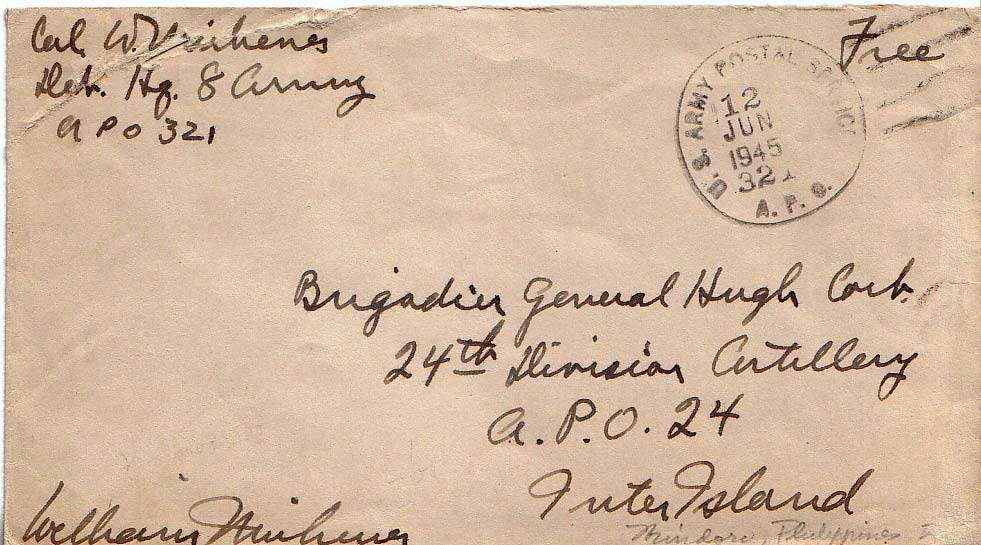 Col. W.
Det. Hq. 8 Army
A P O 321
Free
U.S. ARMY POSTAL SERVICE
12
JUN
1945
321
A. P. O.
Brigadier General Hugh Cort.
24th Division Artillery
A. P. O. 24
Inter Island
Mindoro, Philippines